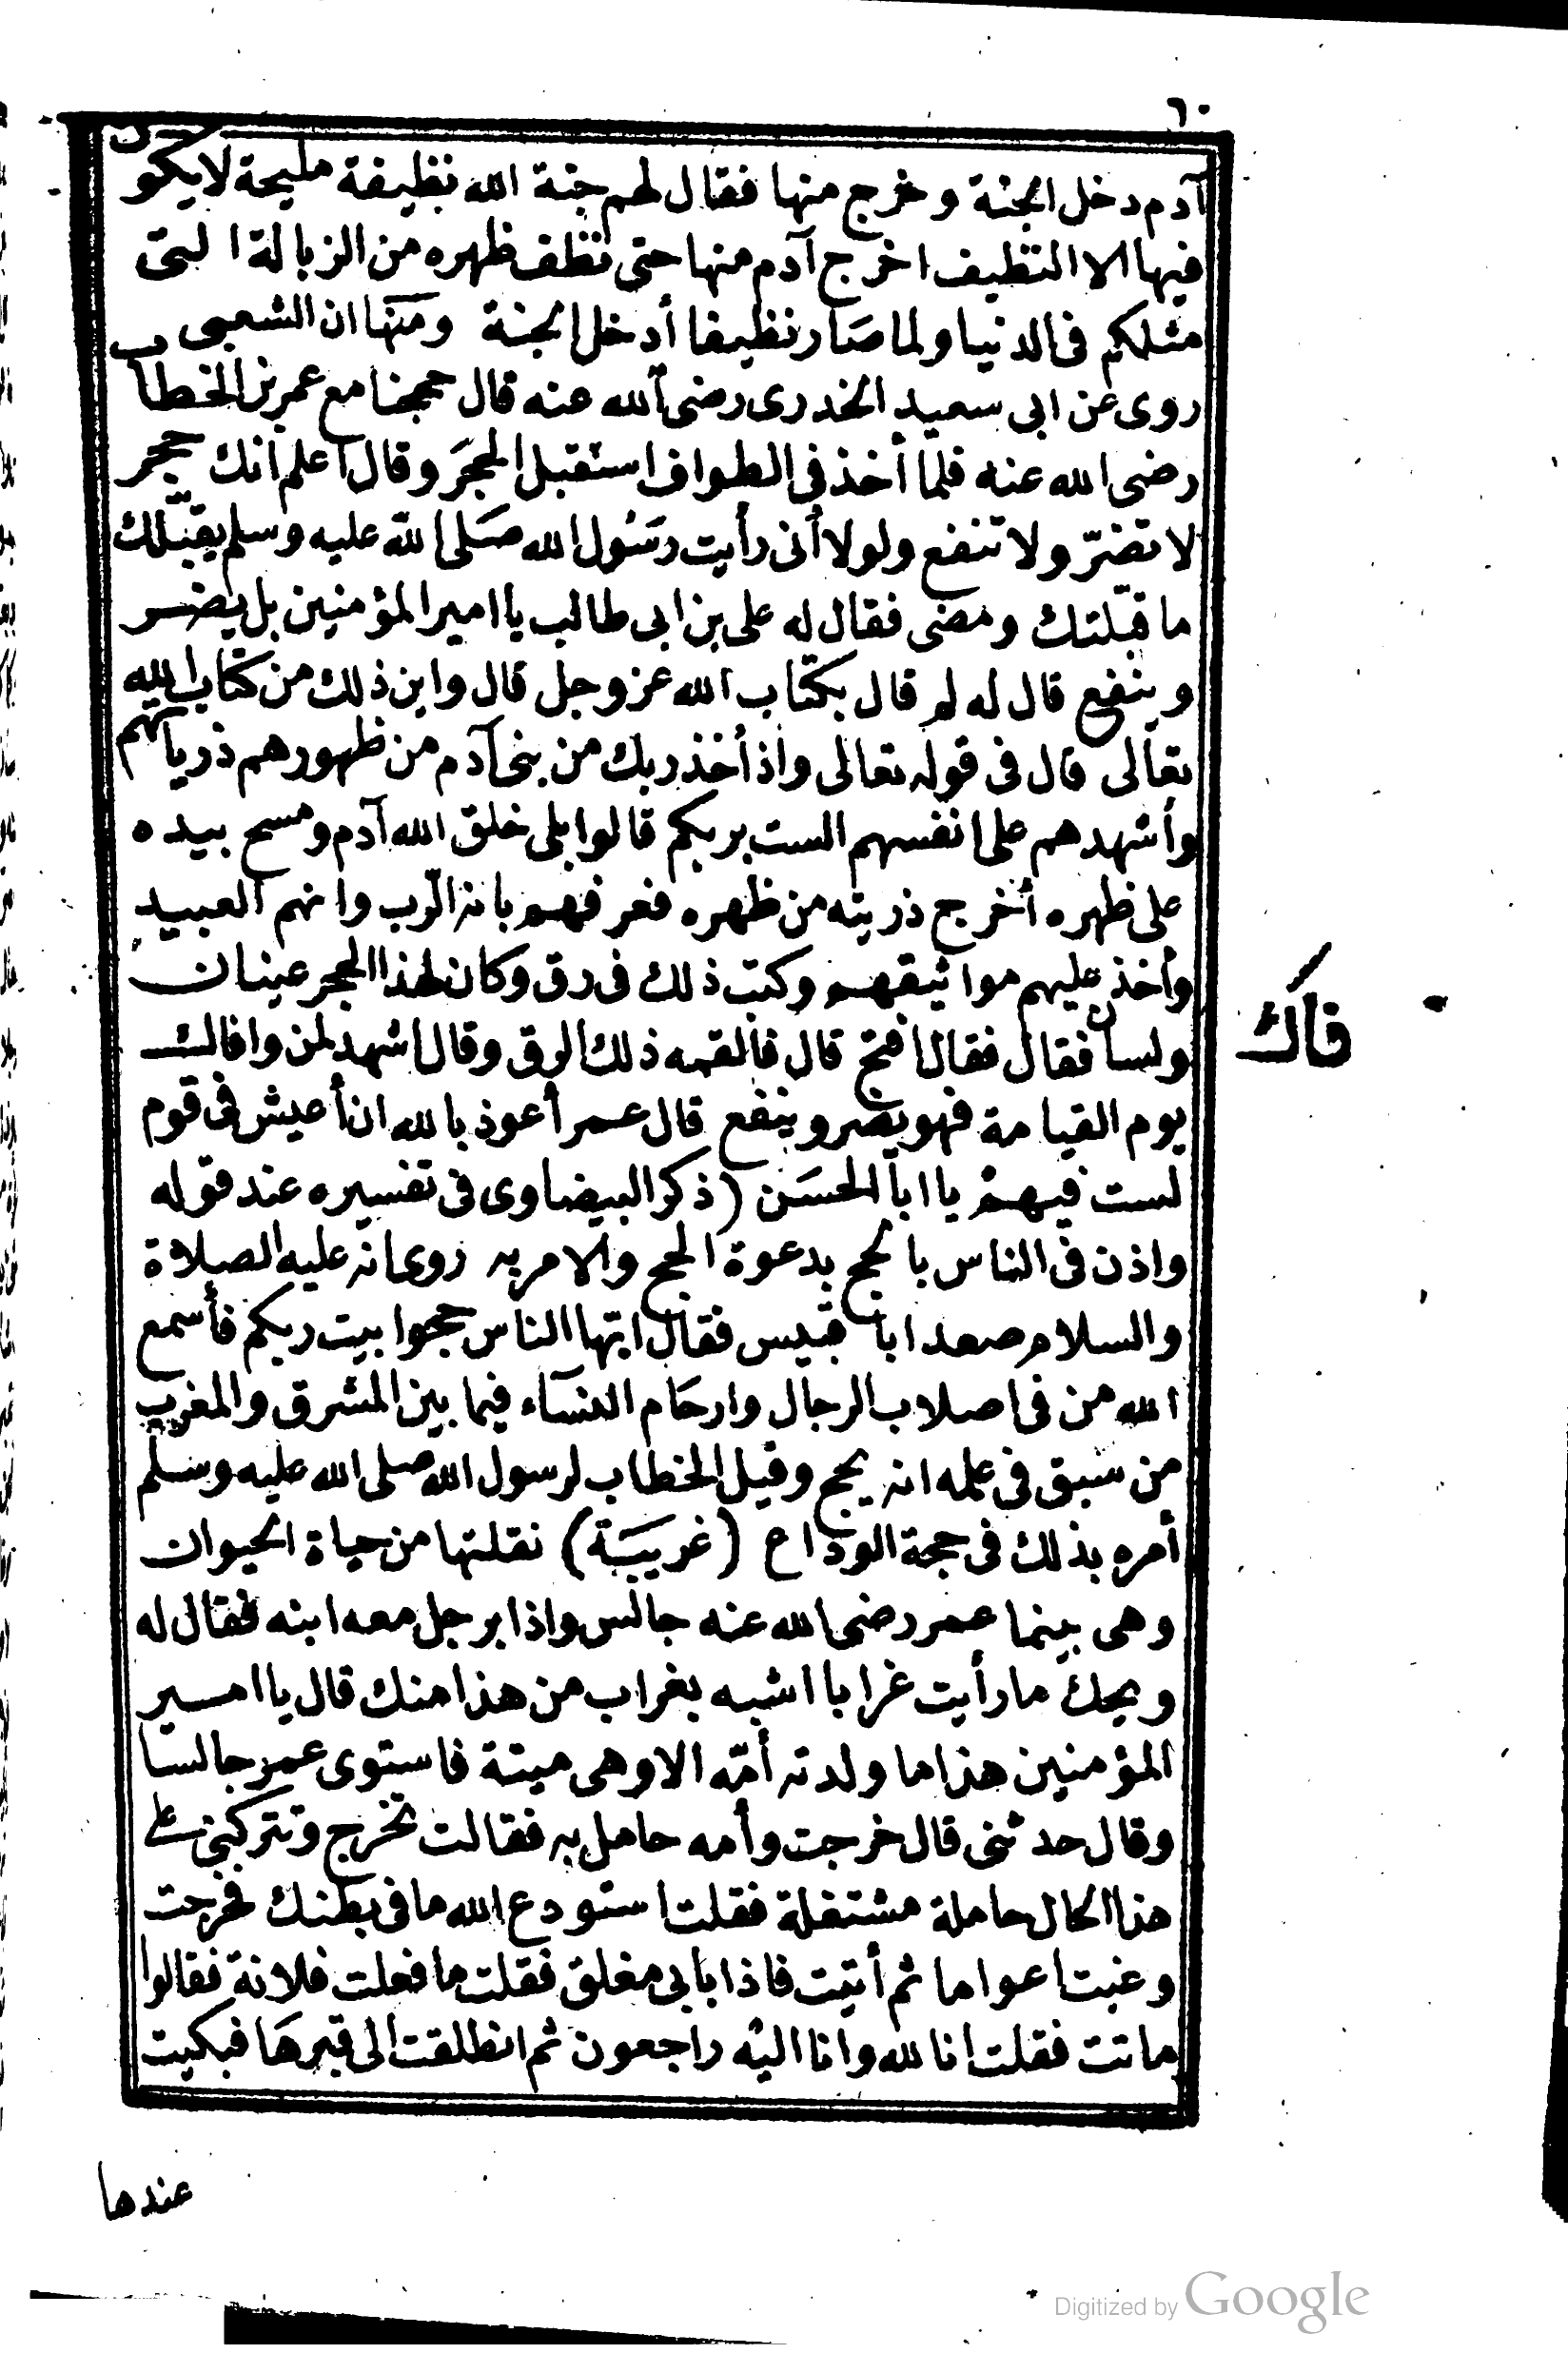 ٦٠
آدم دخل الجنة وخرج منها فقال لهم جنة الله نظيفة مليحة لا يكون
فيها الا النظيف اخرج آدم منها حتى تنظف ظهره من الزبالة التى
مثلكم فى الدنيا ولما صار نظيفا أدخل الجنة ومنها ان الشعبى
روى عن ابى سعيد الخدرى رضى الله عنه قال حججنا مع عمر بن الخطاب
رضى الله عنه فلما أخذ فى الطواف استقبل الحجر وقال اعلم انك حجر
لا تضرّ ولا تنفع ولولا أنى رأيت رسول الله صلى الله عليه وسلم يقبّلك
ما قبّلتك ومضى فقال له على بن ابى طالب يا امير المؤمنين بل يضر
وينفع قال له لم قال بكتاب الله عز وجل قال واين ذلك من كتاب الله
تعالى قال فى قوله تعالى واذ أخذ ربك من بنى آدم من ظهورهم ذرياتهم
وأشهدهم على انفسهم الست بربكم قالوا بلى خلق الله آدم ومسح بيده
على ظهره أخرج ذريته من ظهره فعرفهم بانه الرّب وانهم العبيد
وأخذ عليهم مواثيقهم وكتب ذلك فى رق وكان لهذا الحجر عينان
ولسان فقال فقال افتح قال فالقمه ذلك الرق وقال اشهد لمن وافاك
فاك
يوم القيامة فهو يضر وينفع قال عمر أعوذ بالله ان أعيش فى قوم
لست فيهم يا ابا الحسن (ذكر البيضاوى فى تفسيره عند قوله
واذن فى الناس بالحج بدعوة الحج والامر به روى انه عليه الصلاة
والسلام صعد ابا قبيس فقال ايها الناس حجوا بيت ربكم فأسمع
الله من فى اصلاب الرجال وارحام النساء فيما بين المشرق والمغرب
من سبق فى علمه انه يحج وقيل الخطاب لرسول الله صلى الله عليه وسلم
أمره بذلك فى حجة الوداع (غريبة) نقلتها من حياة الحيوان
وهى بينما عمر رضى الله عنه جالس واذا برجل معه ابنه فقال له
ويحك ما رأيت غرابا اشبه بغراب من هذا منك قال يا امير
المؤمنين هذا ما ولدته أمّه الا وهى ميتة فاستوى عمر جالسا
وقال حدثنى قال خرجت وأمه حامل به فقالت تخرج وتتركنى على
هذا الحال حاملة مشتغلة فقلت استودع الله ما فى بطنك فخرجت
وغبت اعواما ثم أتيت فاذا بابى مغلق فقلت ما فعلت فلانة فقالوا
ماتت فقلت انا لله وانا اليه راجعون ثم انطلقت الى قبرها فبكيت
عندها
Digitized by Google